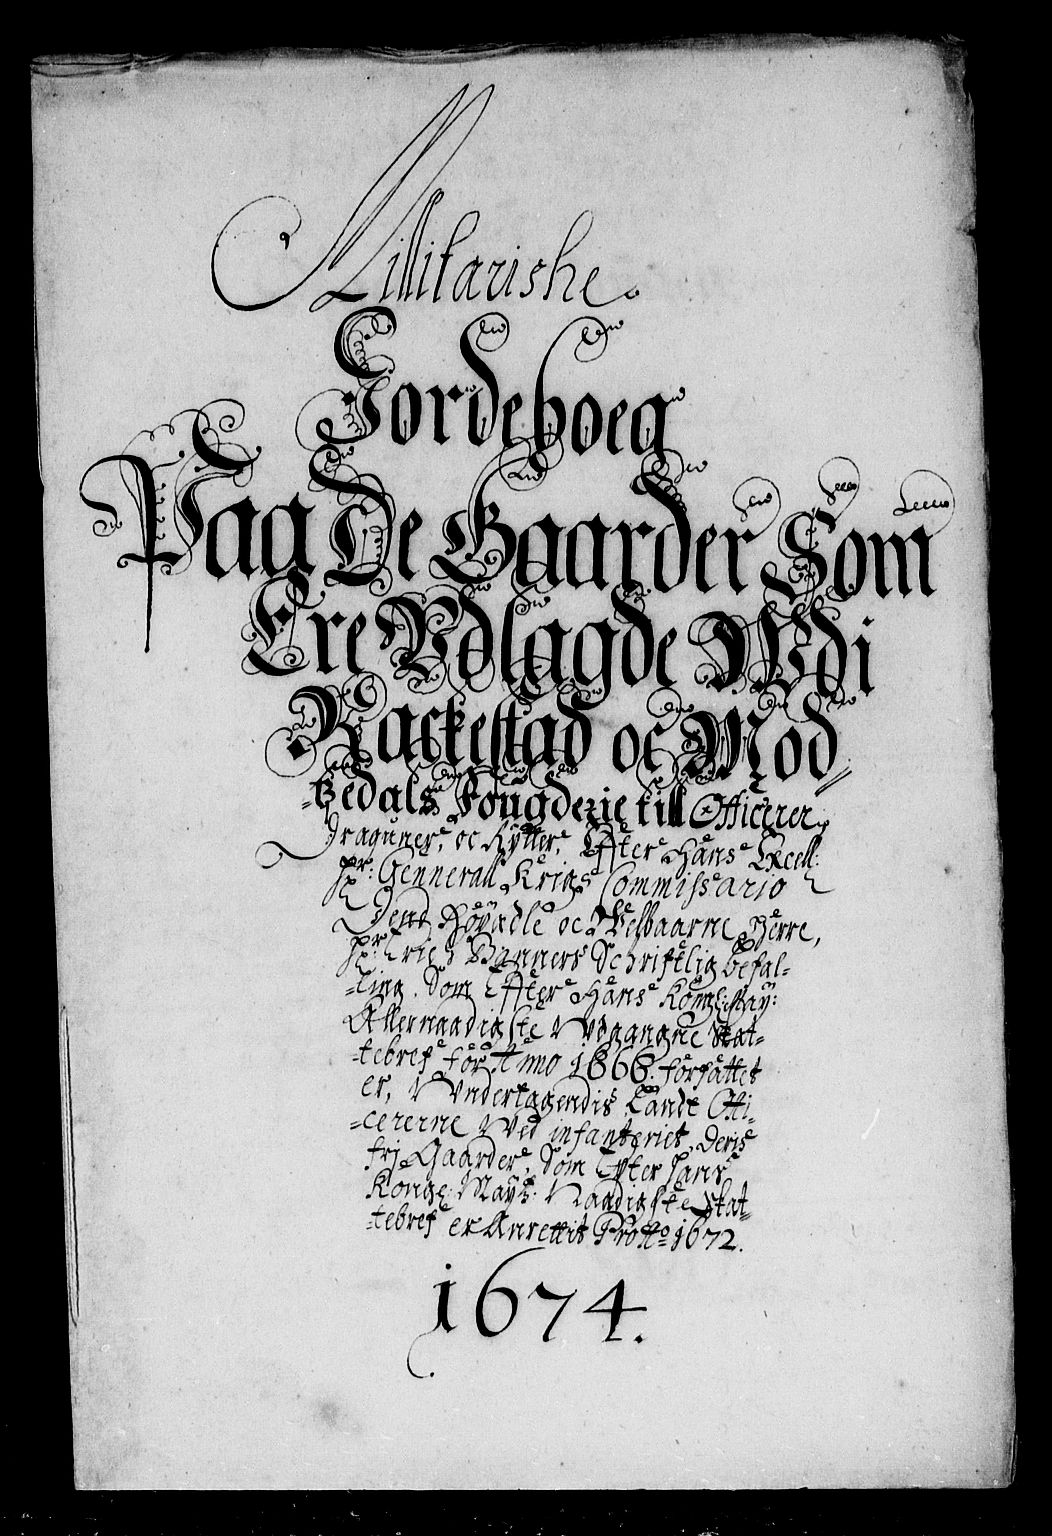 Militarishe
Jordeboeg
Paa De Gaarder Som
Ere Vdlagde Vdi
Rackestad oc Mod
-gedals Fougderie till Officerer,
Draguner, oc Rytter, Effter Hans Excell:
Hr: Gennerall Krigs Commissario
Dend Höyædle oc Velbaarne Herre,
Hr: Erich Banners Schriftlig befal-
-ling. Som Effter Hans Kongl: May:
Allernaadigste Vdgangne Skat-
-tebref for Anno 1666. forfattet
er, Vndertagendis Landt Offi-
-cererne Ved infanteriet, deris
frj Gaarder, Som Efter Hans
Kongl: Mayts: Naadigste Skat-
-tebref er Anrettit Pro Ao 1672.
1674.